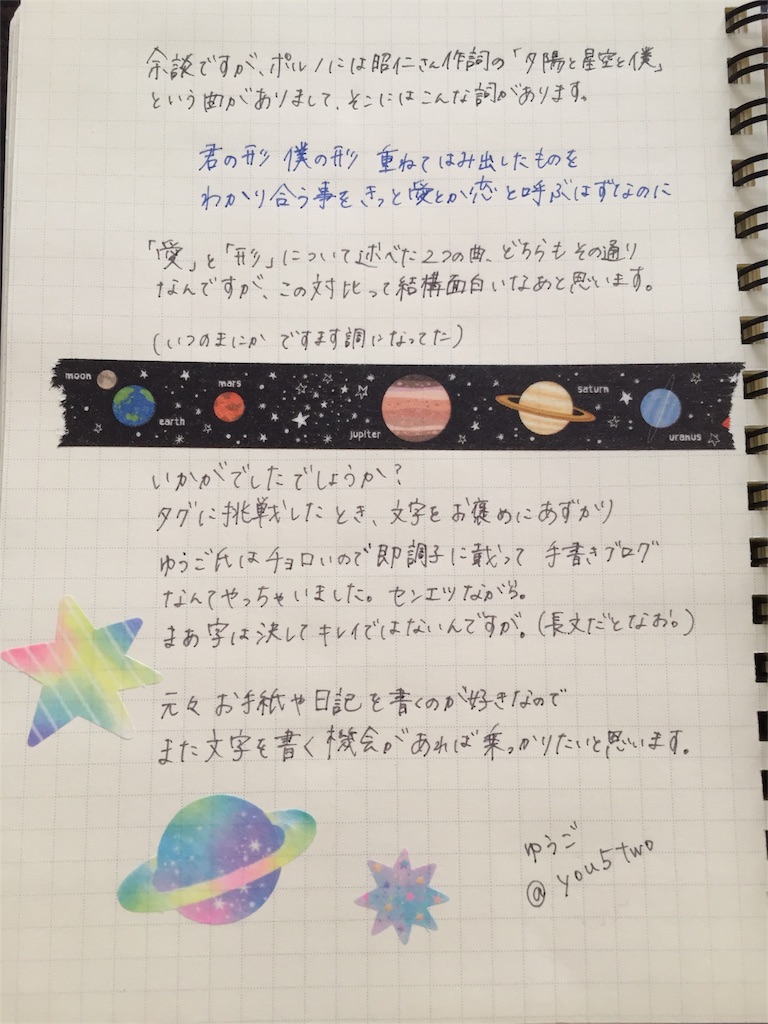 余談ですが、ポルノには昭仁さん作詞の「夕陽と星空と僕」
という曲がありまして、そこにはこんな詞があります。
君の形 僕の形 重ねてはみ出したものを
わかり合う事をきっと愛とか恋と呼ぶはずなのに
「愛」と「形」について述べた2つの曲、どちらもその通り
なんですが、この対比って結構面白いなあと思います。
(いつのまにか ですます調になってた)
moon
earth
mars
jupiter
saturn
uranus
いかがでしたでしょうか?
タグに挑戦したとき、文字をお褒めにあずかり
ゆうご氏はチョロいので即調子に載って 手書きブログ
なんてやっちゃいました。センエツながら。
まあ字は決してキレイではないんですが。(長文だとなお。)
元々 お手紙や日記を書くのが好きなので
また文字を書く機会があれば乗っかりたいと思います。
ゆうご
@you5two